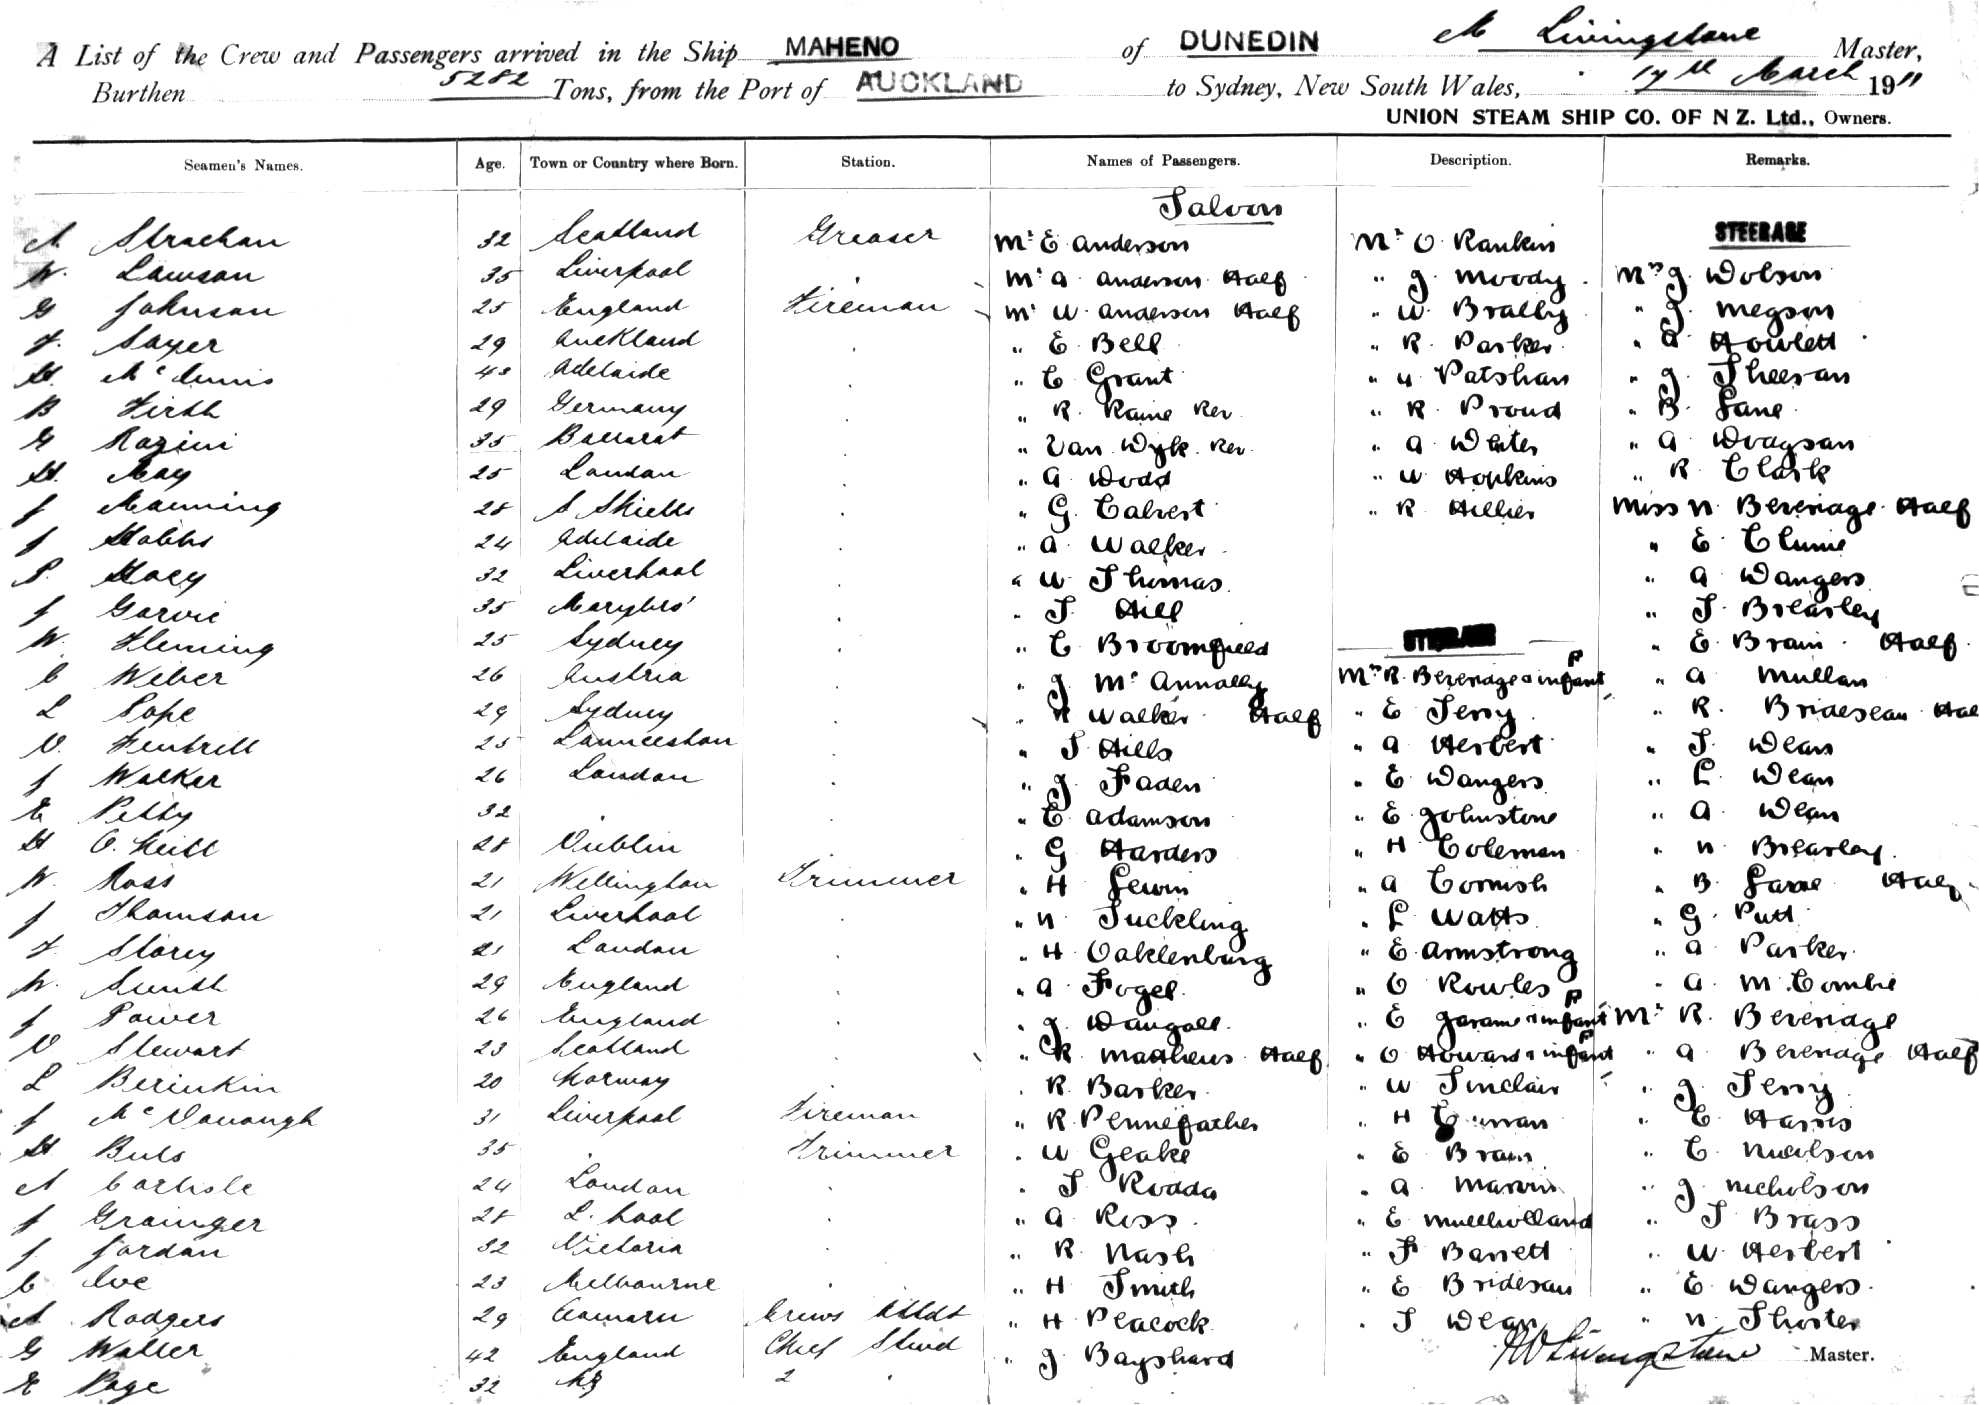 A List of the Crew and Passengers arrived in the Ship MAHENO of DUNEDIN M Livingstone Master,
Burthen 5282 Tons, from the Port of AUCKLAND to Sydney, New South Wales, 17th March 1911
UNION STEAM SHIP CO. OF N Z. Ltd., Owners.
Seamen's Names. Age. Town or Country where Born. Station. Names of Passengers. Description. Remarks.
Saloon
A Strachan 32 Scotland Greaser Mr E Anderson Mr O Rankin STEERAGE
W. Lawson 35 Liverpool " Mr A Anderson Half " J Moody Mrs J. Dolson
G Johnson 25 England Fireman Mr W Anderson Half " W Bralby " J. Megson
F. Sayer 29 Auckland " E Bell " R Parker " A Howlett
H. McInnis 43 Adelaide " C Grant " Patshan " J Theesan
B Firth 29 Germany " R Raine Rev " R Proud " B. Lane
G Rogini 35 Ballarat " Van Wyk Rev " A White " A Dodgson
H. May 25 London " A Dodd " W Hopkins " R Clark
J Manning 28 S Shields " G. Calvert " R Hillier Miss N. Beveridge Half
J Hobbs 24 Adelaide " A Walker " E Clunie
P. Hoey 32 Liverpool " W Thomas " A Dangers
J Garvie 35 Marybro' " T. Hill " T. Brearley
W. Fleming 25 Sydney " C Broomfield STEERAGE " E Brain Half
C Weber 26 Austria " J McAnnally Mrs R. Beveridge & infant " A Mullan
L Pope 29 Sydney " R Walker Half " E Terry " R. Brideson Half
V. Fentrill 25 Launceston " T Hills " A Herbert " T. Dean
J Walker 26 London " J Faden " E Dangers " L. Dean
E Petty 32 " " E Adamson " E Johnstone " A Dean
H O'Neill 28 Dublin " G Harders " H Coleman " N Brearley
W. Ross 21 Wellington Trimmer " H Lewin " A Cornish " B Lane Half
J Thomson 21 Liverpool " N Suckling " L Watts " G. Putt
F Storey 21 London " H Oaklenburg " E Armstrong " A Parker
W. Smith 29 England " A Fogel " O Rowles " A McCombie
J Power 26 England " J. Dougall " E Garame & infant Mr R. Beveridge
V Stewart 23 Scotland " R Mathews Half " O Howard & infant " A Beveridge Half
L Berinkin 20 Norway " R Barker " W Sinclair " J Terry
J McDonough 31 Liverpool Fireman " R. Pennefather " H " E Harris
H Buls 35 " Trimmer " W Geake " E Brain " C Neilson
A Carlisle 24 London " T Rodda " A Marvin " J Nicholson
J Grainger 28 L. pool " A Ross " E Mullholland " T Brass
J. Jordan 32 Victoria " R Nash " F Barrett " W Herbert
C Ive 23 Melbourne " H Smith " E Brideson " E Dangers
A Rodgers 29 Oamaru Crews Attdt " H Peacock " T Dean " N. Thorter
G Waller 42 England Chief Stewd " J Bayshard Livingstone Master.
E Page 32 NZ 2 "